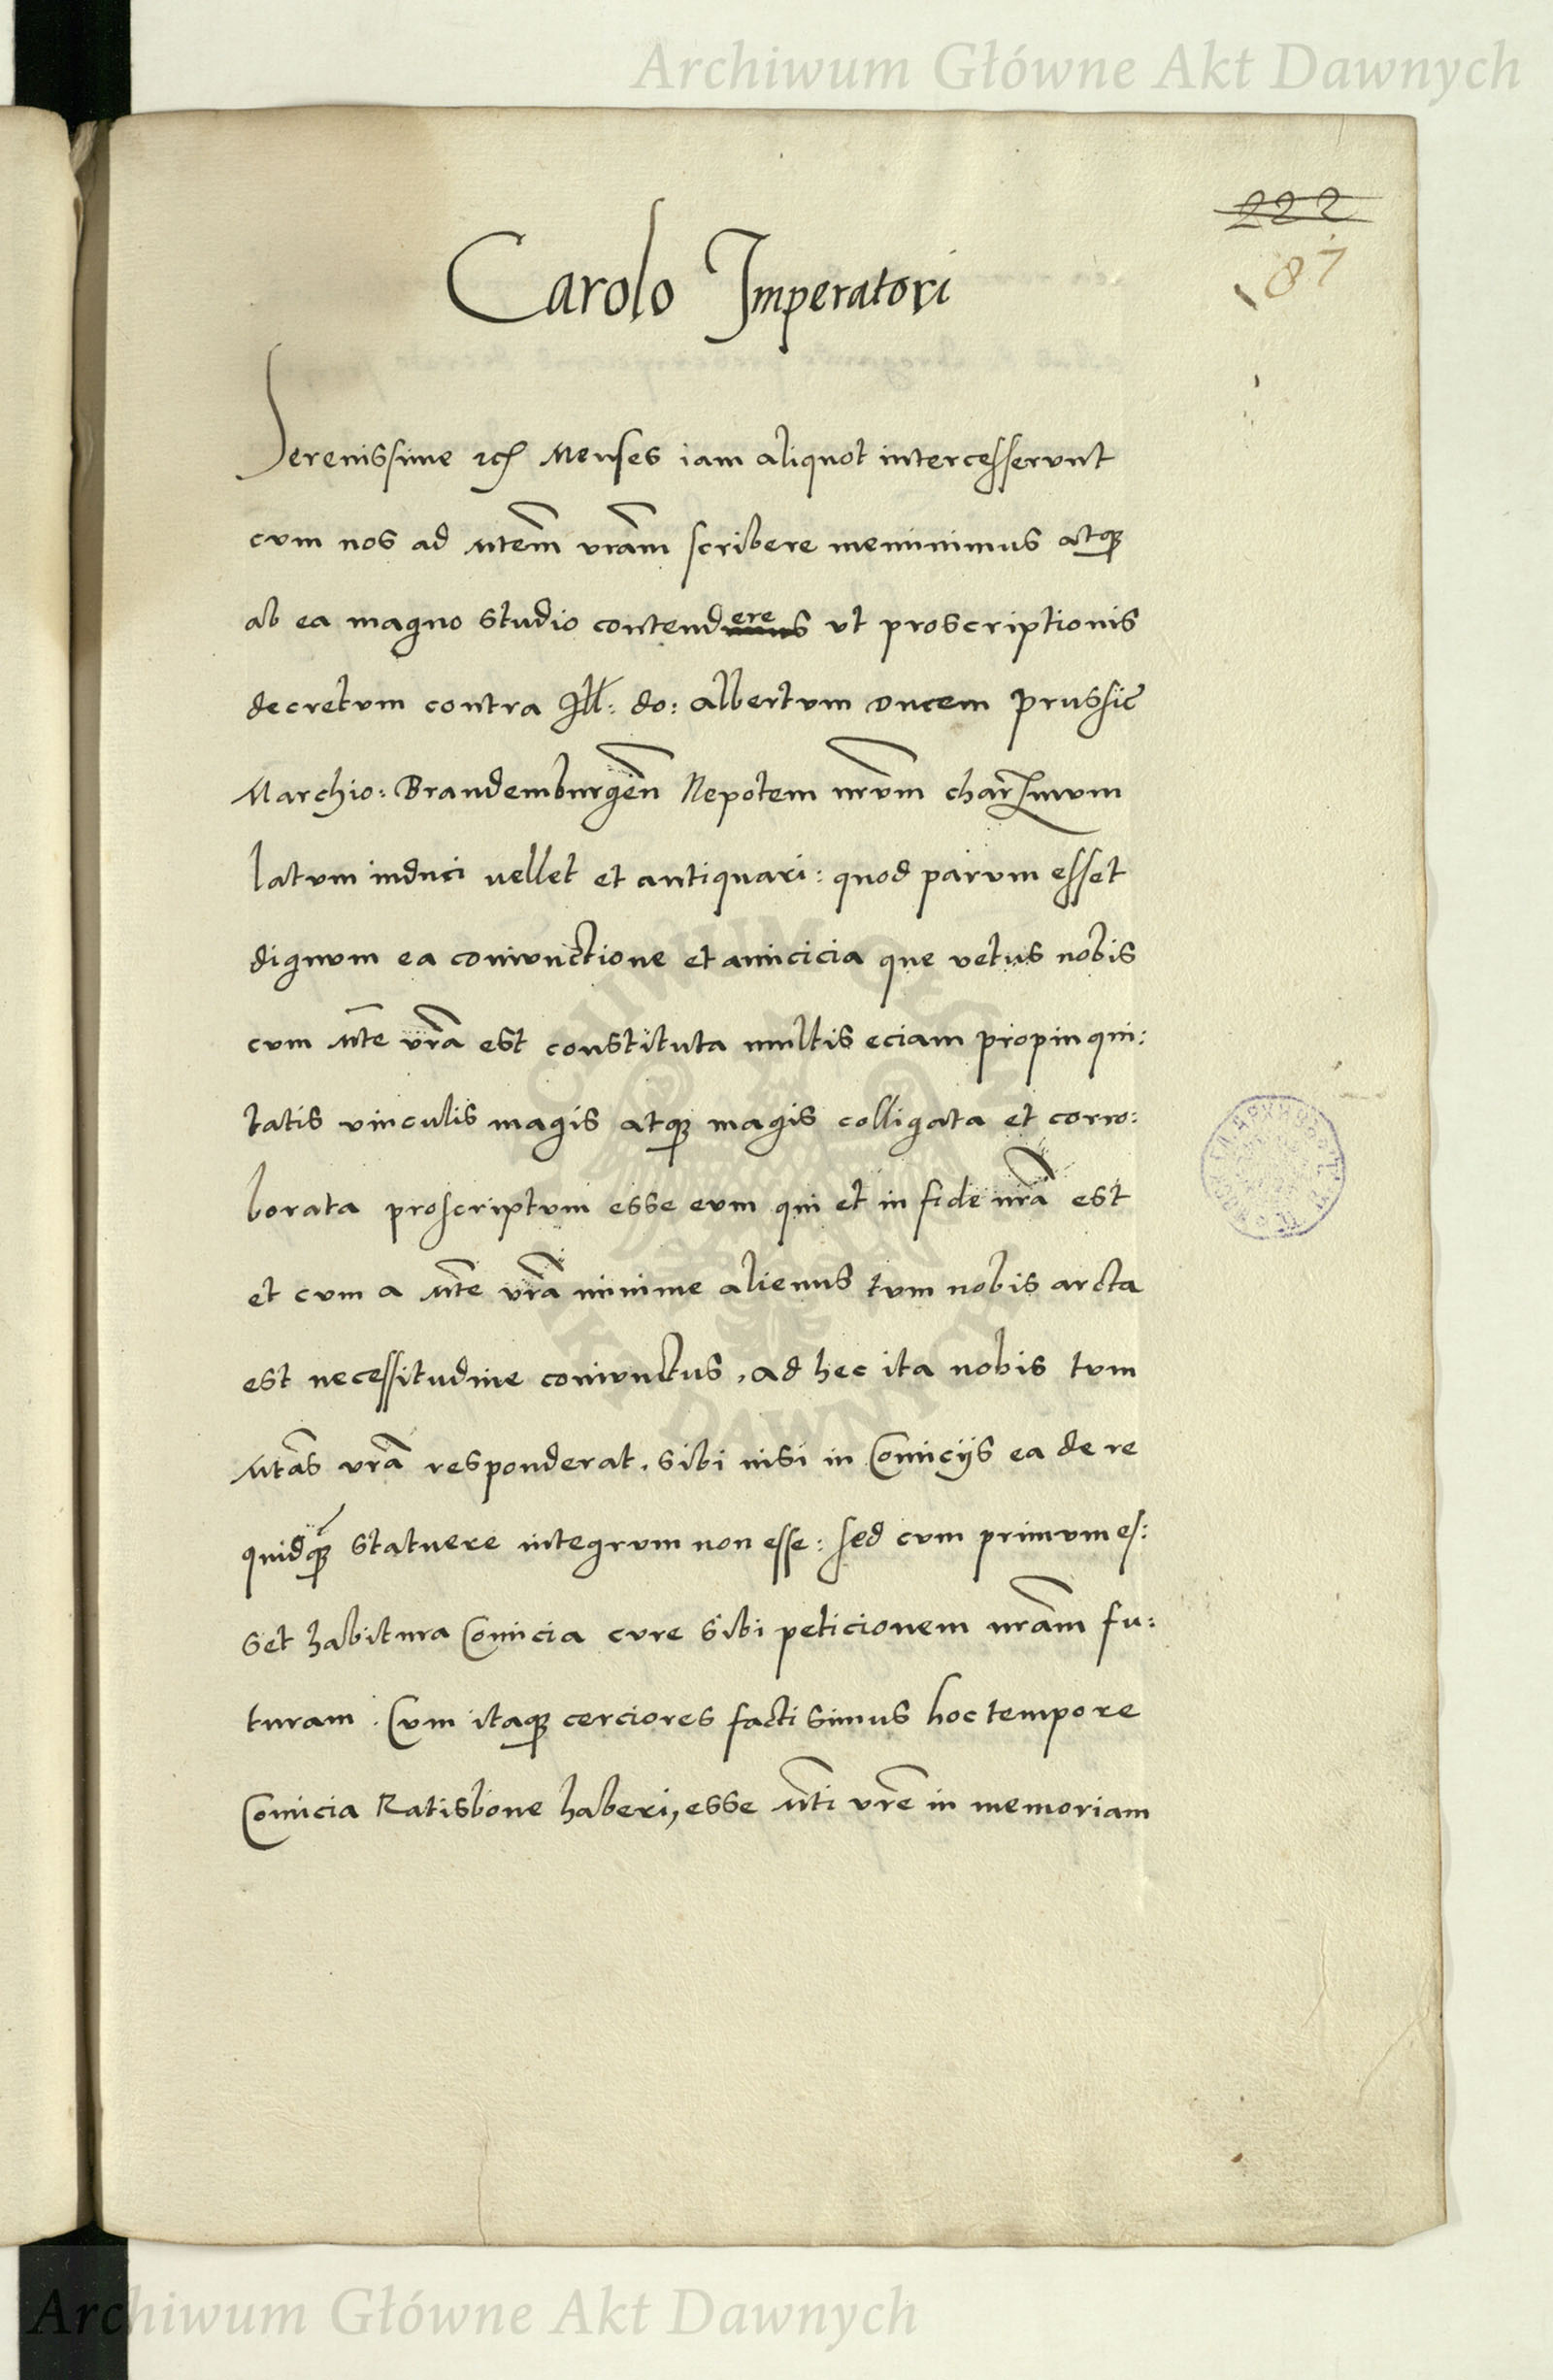 Archiwum Główne Akt Dawnych
222
187
Carolo Imperatori
Serenissime etc Menses iam aliquot intercesserunt
cum nos ad Mtem vram scribere meminimus atq
ab ea magno studio contendere ut proscriptionis
decretum contra Ill: do: Albertum Ducem Prussie
Marchio: Brandemburgen Nepotem nrum charissimum
latum induci vellet et antiquari: quod parum esset
dignum ea coniunctione et amicicia que vetus nobis
cum Mte vra est constituta multis eciam propinqui:
tatis vinculis magis atq magis colligata et corro:
borata proscriptum esse eum qui et in fide nra est
et cum a Mte vra minime alienus tum nobis arcta
est necessitudine coniunctus, ad hec ita nobis tum
Mtas vra responderat, sibi nisi in Comicijs ea de re
quidq statuere integrum non esse: sed cum primum es:
set habitura Comicia cure sibi peticionem nram fu:
turam. Cum itaq cerciores facti simus hoc tempore
Comicia Ratisbone haberi, esse Mti vre in memoriam
ARCHIWUM GŁÓWNE
AKT DAWNYCH
Archiwum Główne Akt Dawnych